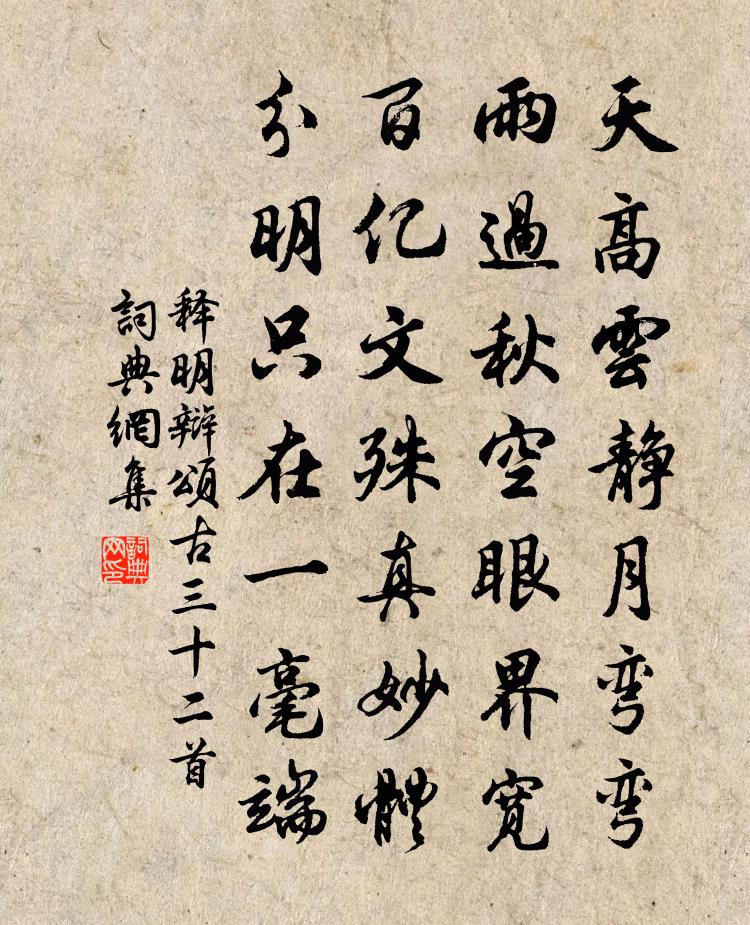 天高雲静月弯弯
雨過秋空眼界寬
百亿文殊真妙體
分明只在一毫端
释明辯頌古三十二首
詞典網集
詞典网印